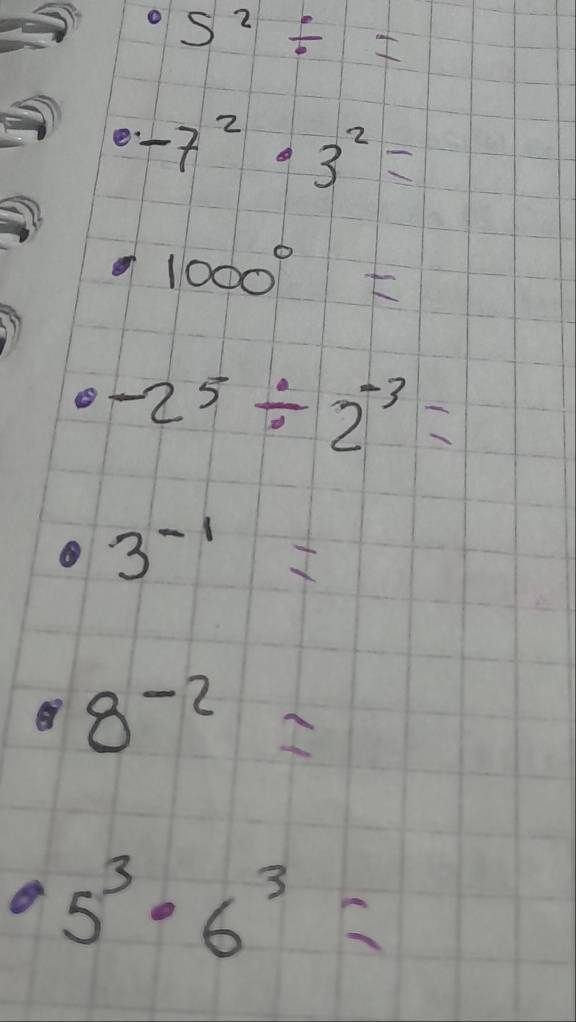 • 5² ÷ =
• -7² · 3² =
• 1000⁰ =
• -2⁵ ÷ 2⁻³ =
• 3⁻¹ =
• 8⁻² =
• 5³ · 6³ =